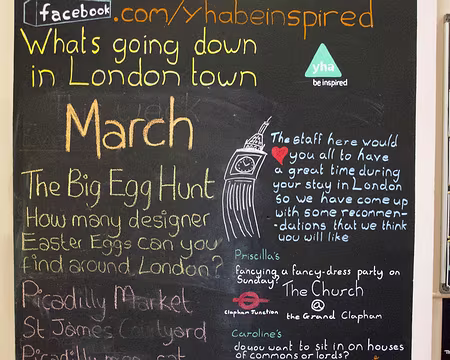 facebook.com/yhabeinspired
Whats going down
in London town
yha
be inspired
March
The Big Egg Hunt
How many designer
Easter Eggs can you
find around London?
Picadilly Market
St James Courtyard
Picadilly
The staff here would
you all to have
a great time during
your stay in London
so we have come up
with some recommen-
-dations that we think
you will like
Priscilla's
fancying a fancy-dress party on
Sunday?
The Church
@
the Grand Clapham
Clapham Junction
Caroline's
do you want to sit in on houses
of commons or lords?